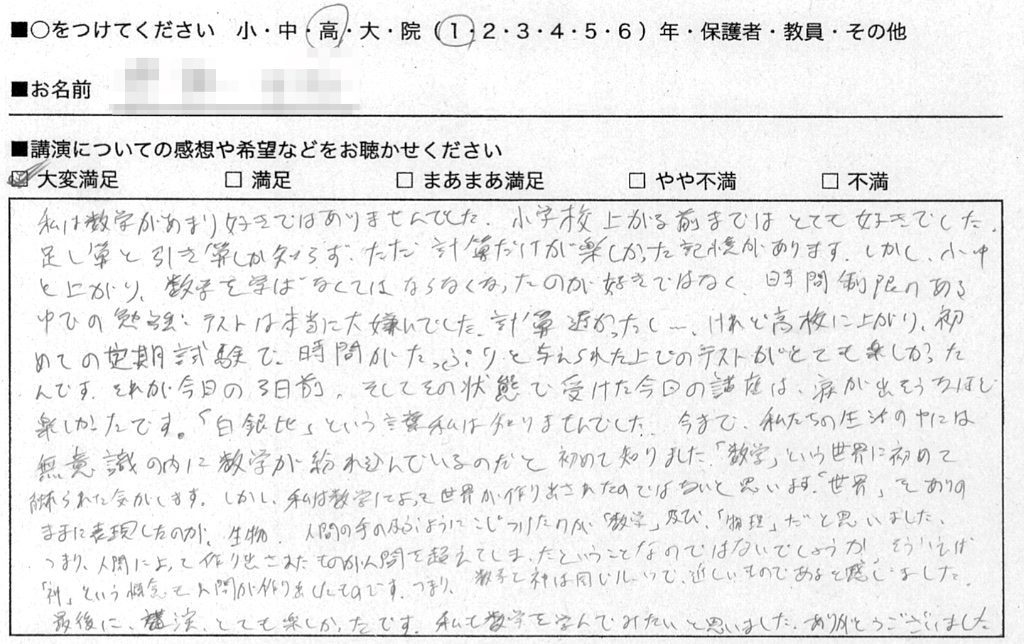 ■○をつけてください 小・中・高・大・院（1・2・3・4・5・6）年・保護者・教員・その他
■お名前
■講演についての感想や希望などをお聴かせください
☑ 大変満足 □ 満足 □ まあまあ満足 □ やや不満 □ 不満
私は数学があまり好きではありませんでした。小学校上がる前まではとても好きでした。
足し算と引き算しか知らず、ただ計算だけが楽しかった記憶があります。しかし、小中
と上がり、数学を学ばなくてはならなくなったのが好きではなく、時間制限のある
中での勉強、テストは本当に大嫌いでした。計算遅かったし…。けれど高校に上がり、初
めての定期試験で、時間がたっぷりと与えられた上でのテストがとても楽しかった
んです。それが今日の3日前。そしてその状態で受けた今日の講座は、涙が出そうなほど
楽しかったです。「白銀比」という言葉私は知りませんでした。今まで、私たちの生活の中には
無意識の内に数学が紛れ込んでいるのだと初めて知りました。「数学」という世界に初めて
触られた気がします。しかし、私は数学によって世界が作り出されたのではないと思います。「世界」をありの
ままに表現したのが、生物、人間の手の及ぶようにこじつけたのが「数学」及び、「物理」だと思いました。
つまり、人間によって作り出されたものが人間を超えてしまったということなのではないでしょうか。そういえば
「神」という概念も人間が作り出したものです。つまり、数学と神は同じ、近しいものであると感じました。
最後に、講演、とても楽しかったです。私も数学を学んでみたいと思いました。ありがとうございました